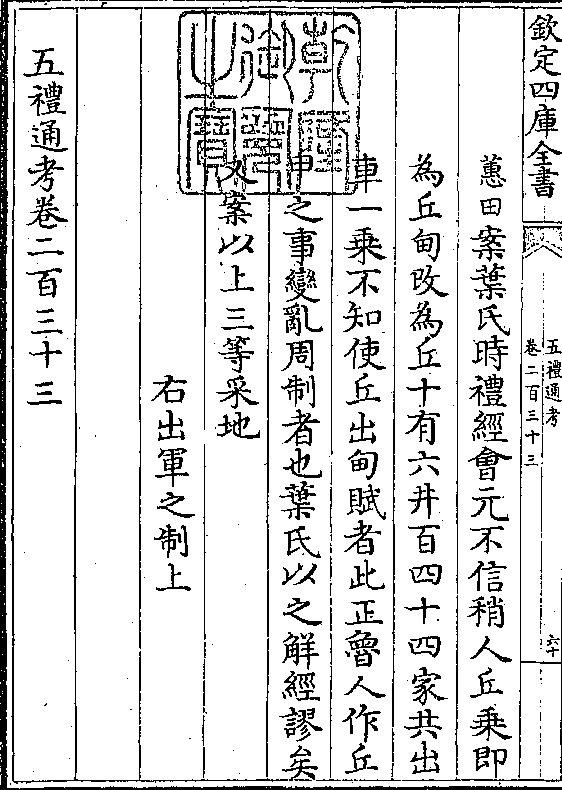 欽定四庫全書
五禮通考
卷二百三十三
六十
蕙田案葉氏時禮經會元不信稍人丘乘即
為丘甸改為丘十有六井百四十四家共出
車一乘不知使丘出甸賦者此正魯人作丘
甲之事變亂周制者也葉氏以之解經謬矣
又案以上三等采地
右出軍之制上
五禮通考卷二百三十三
乾隆御覽之寶